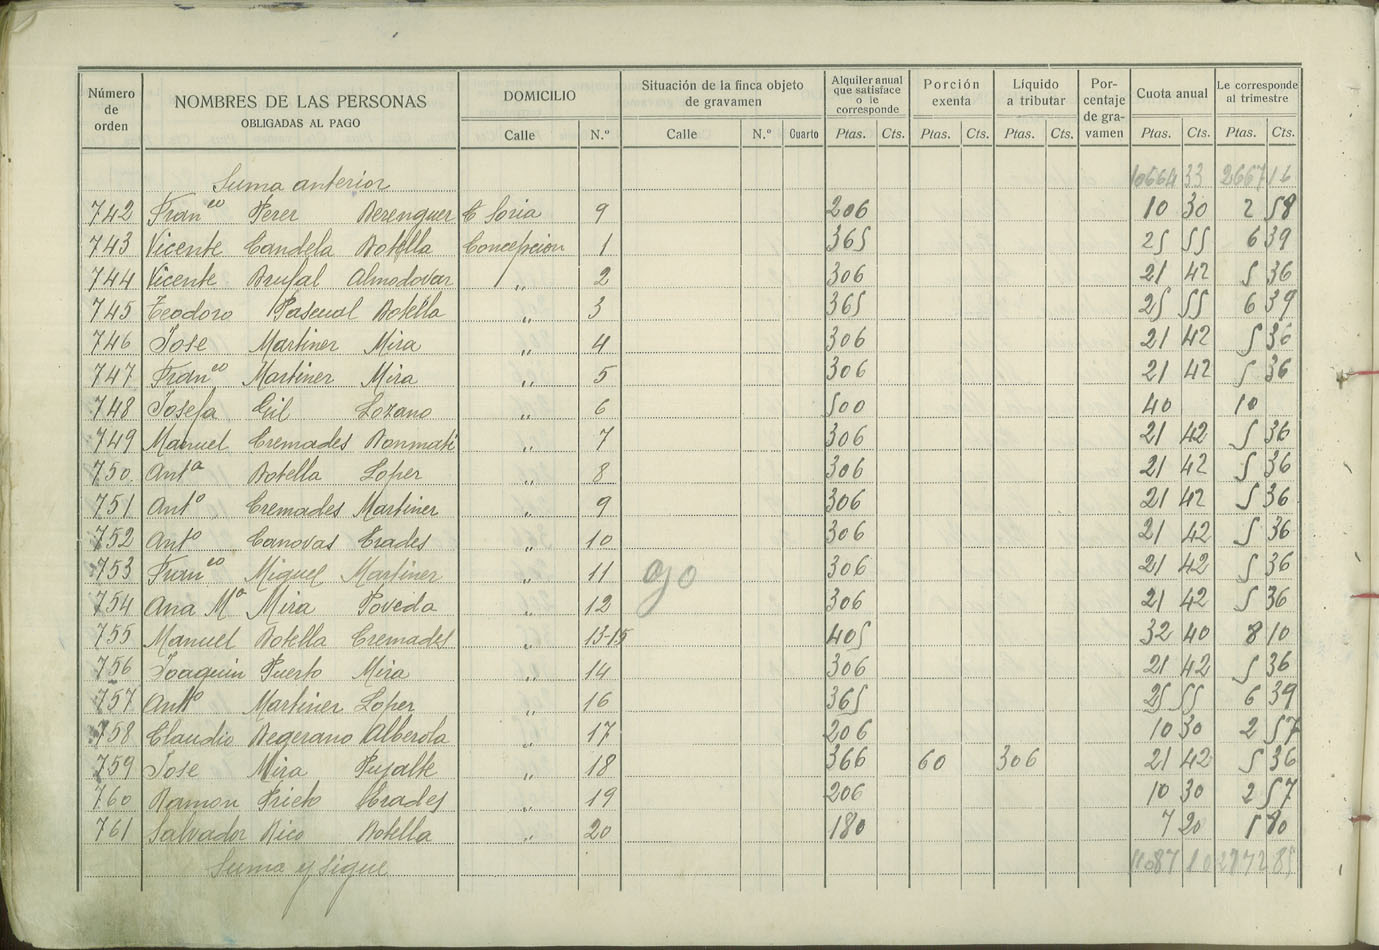 Número de orden | NOMBRES DE LAS PERSONAS OBLIGADAS AL PAGO | DOMICILIO | Situación de la finca objeto de gravamen | Alquiler anual que satisface o le corresponde | Porción exenta | Líquido a tributar | Porcentaje de gravamen | Cuota anual | Le corresponde al trimestre
Calle | N.º | Calle | N.º | Cuarto | Ptas. | Cts. | Ptas. | Cts. | Ptas. | Cts. | Ptas. | Cts. | Ptas. | Cts.
Suma anterior 10664 33 2667 16
742 Franco Perez Berenguer C Soria 9 206 10 30 2 58
743 Vicente Candela Botella Concepcion 1 365 25 55 6 39
744 Vicente Brufal Almodovar " 2 306 21 42 5 36
745 Teodoro Pascual Botella " 3 365 25 55 6 39
746 Jose Martinez Mira " 4 306 21 42 5 36
747 Franco Martinez Mira " 5 306 21 42 5 36
748 Josefa Gil Lozano " 6 500 40 10
749 Manuel Cremades Bonmati " 7 306 21 42 5 36
750 Anta Botella Lopez " 8 306 21 42 5 36
751 Anto Cremades Martinez " 9 306 21 42 5 36
752 Anto Canovas Crades " 10 306 21 42 5 36
753 Franco Miguel Martinez " 11 go 306 21 42 5 36
754 Ana Ma Mira Poveda " 12 306 21 42 5 36
755 Manuel Botella Cremades " 13-15 405 32 40 8 10
756 Joaquin Puerto Mira " 14 306 21 42 5 36
757 Anto Martinez Lopez " 16 365 25 55 6 39
758 Claudio Begerano Alberola " 17 206 10 30 2 57
759 Jose Mira Pujalte " 18 366 60 306 21 42 5 36
760 Ramon Prieto " 19 206 10 30 2 57
761 Salvador Rico Botella " 20 180 7 20 1 80
Suma y sigue